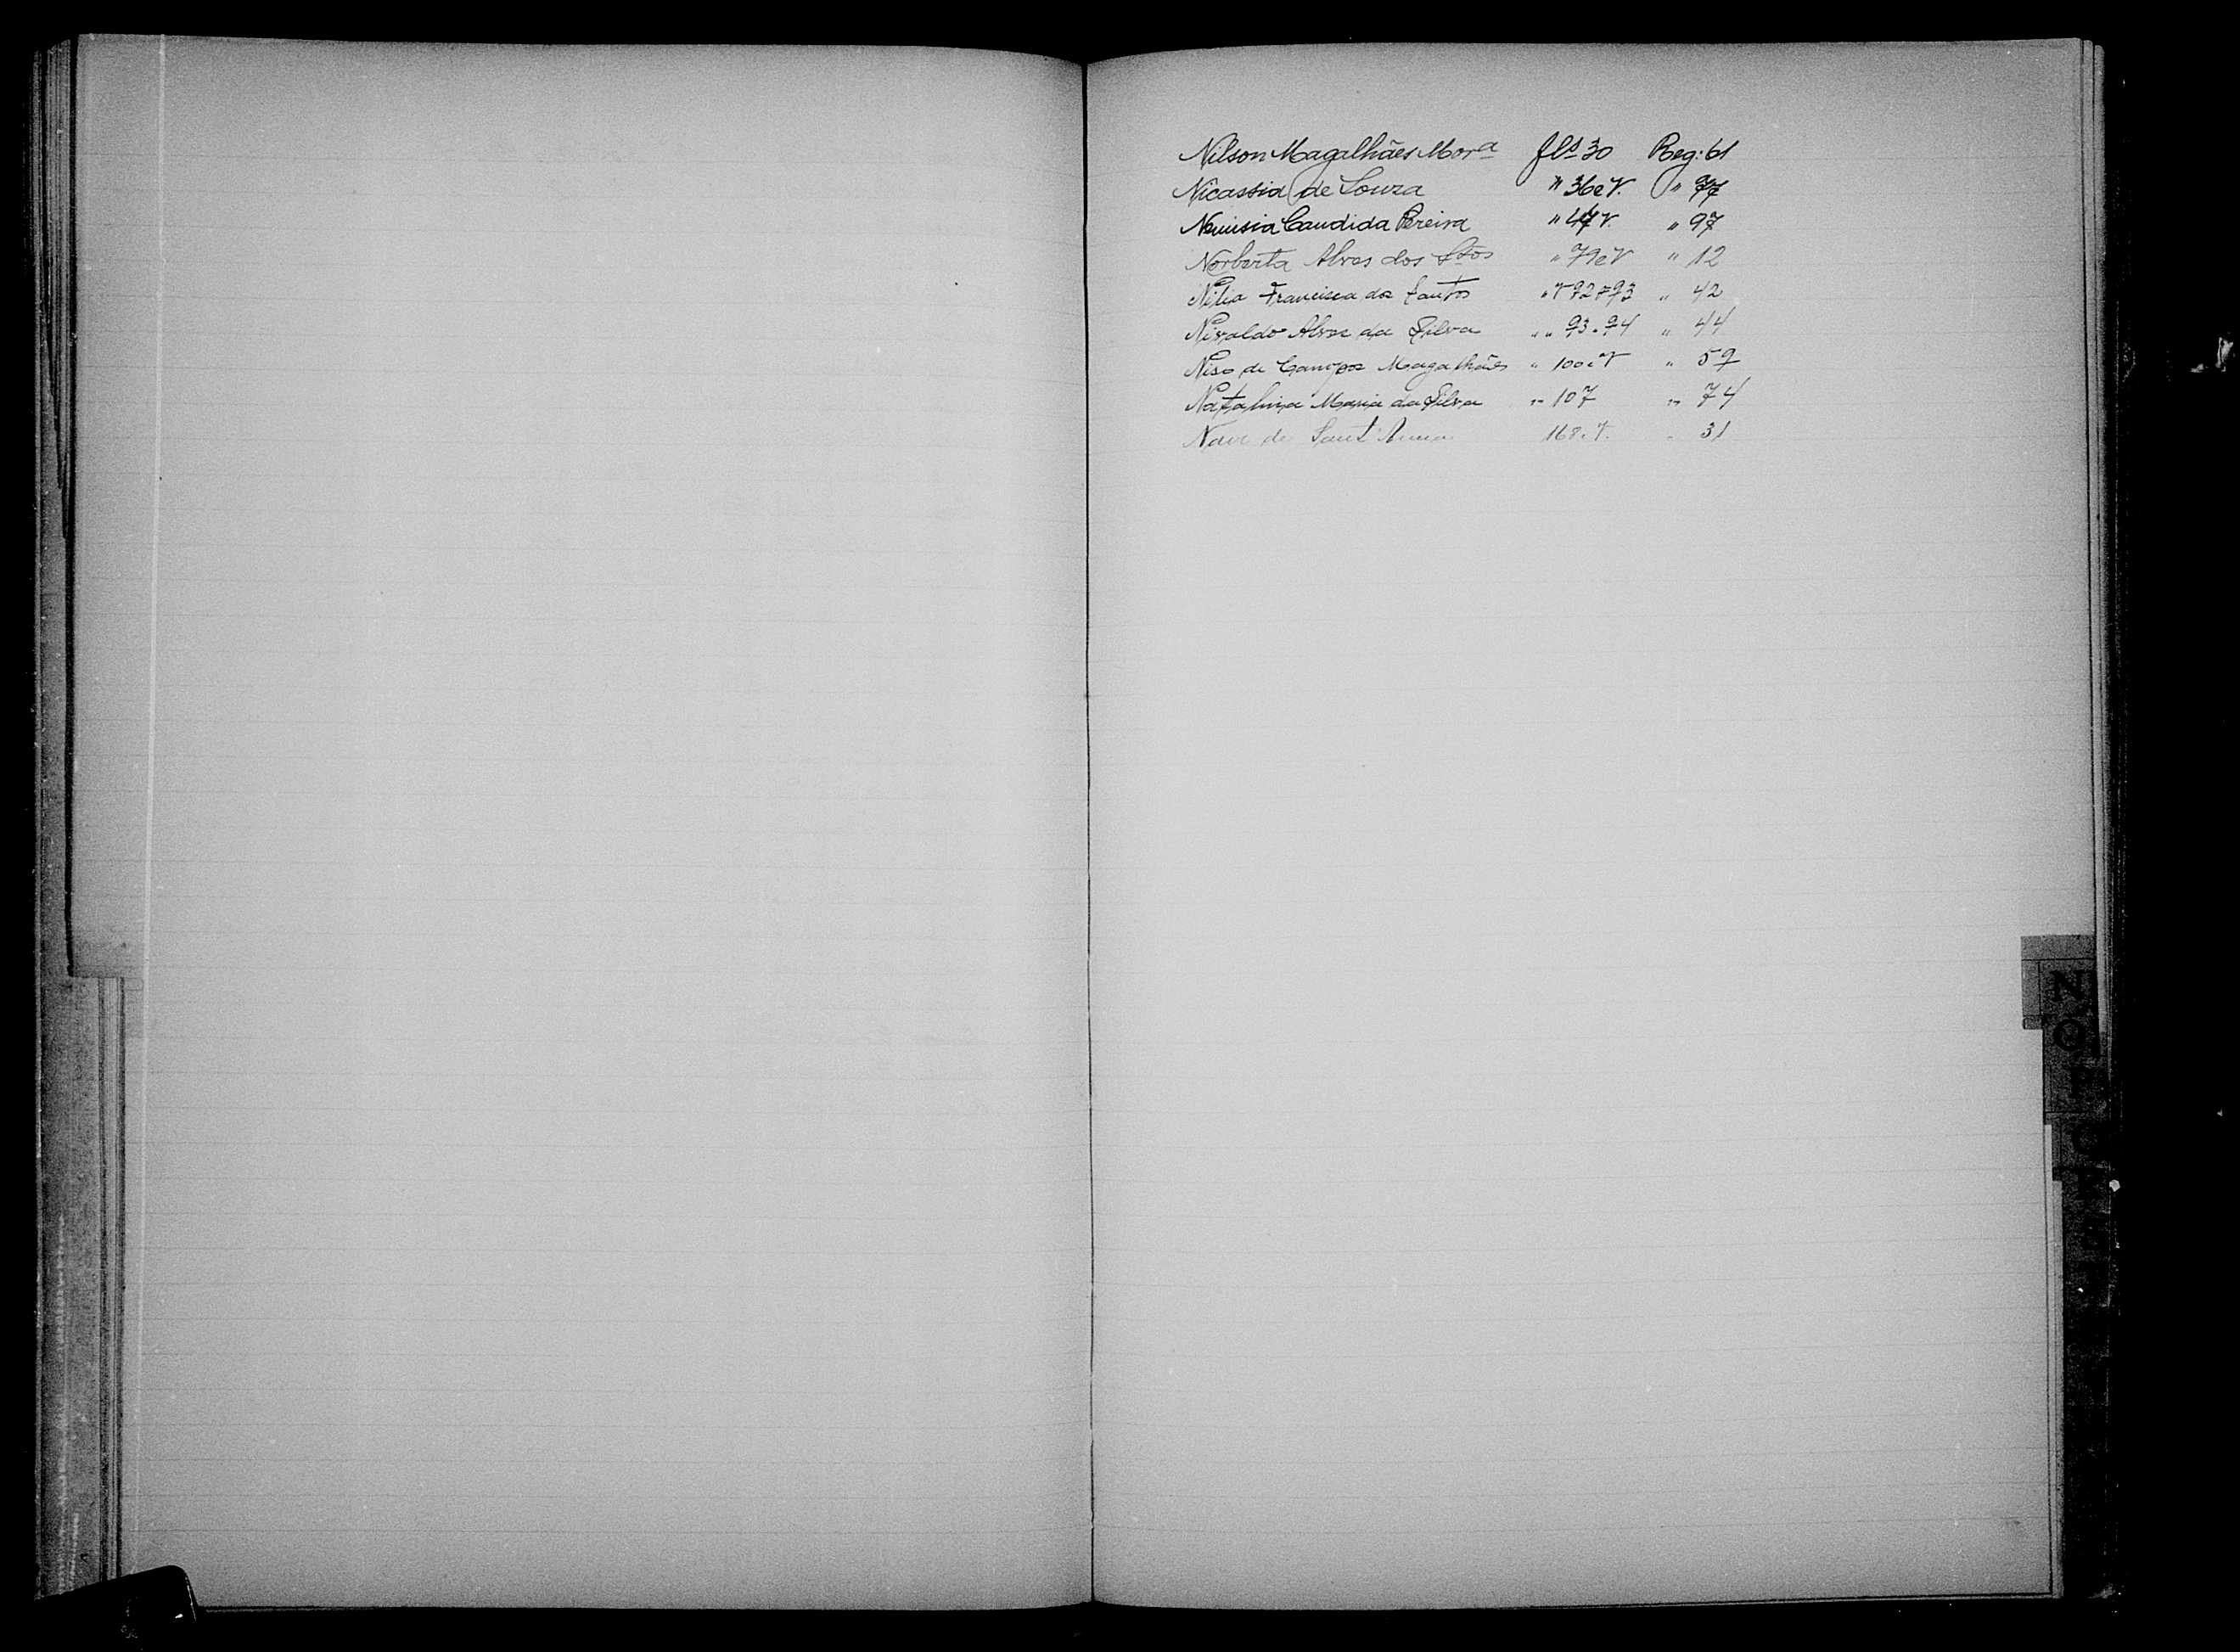 Nilson Magalhães Morª fls 30 Reg: 61
Nicassia de Souza " 36 e V. " 77
Nemisia Candida Pereira " 47 V. " 97
Norberta Alves dos Stos " 79 e V " 12
Nilia Francisca dos Santos " V 92 e 93 " 42
Nivaldo Alves da Silva " " 93 e 94 " 44
Niso de Campos Magalhães " 100 e V " 59
Natalina Maria da Silva " 107 " 74
de Sant'Anna 168 e V. " 31
N
O